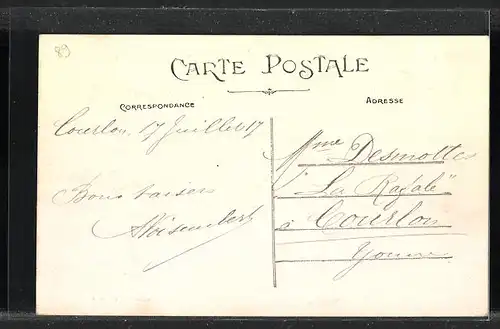 89
CARTE POSTALE
CORRESPONDANCE
ADRESSE
Courlon, 17 Juillet 17
Bons baisers
Mme Desmottes
"La Rafale"
à Courlon
Yonne